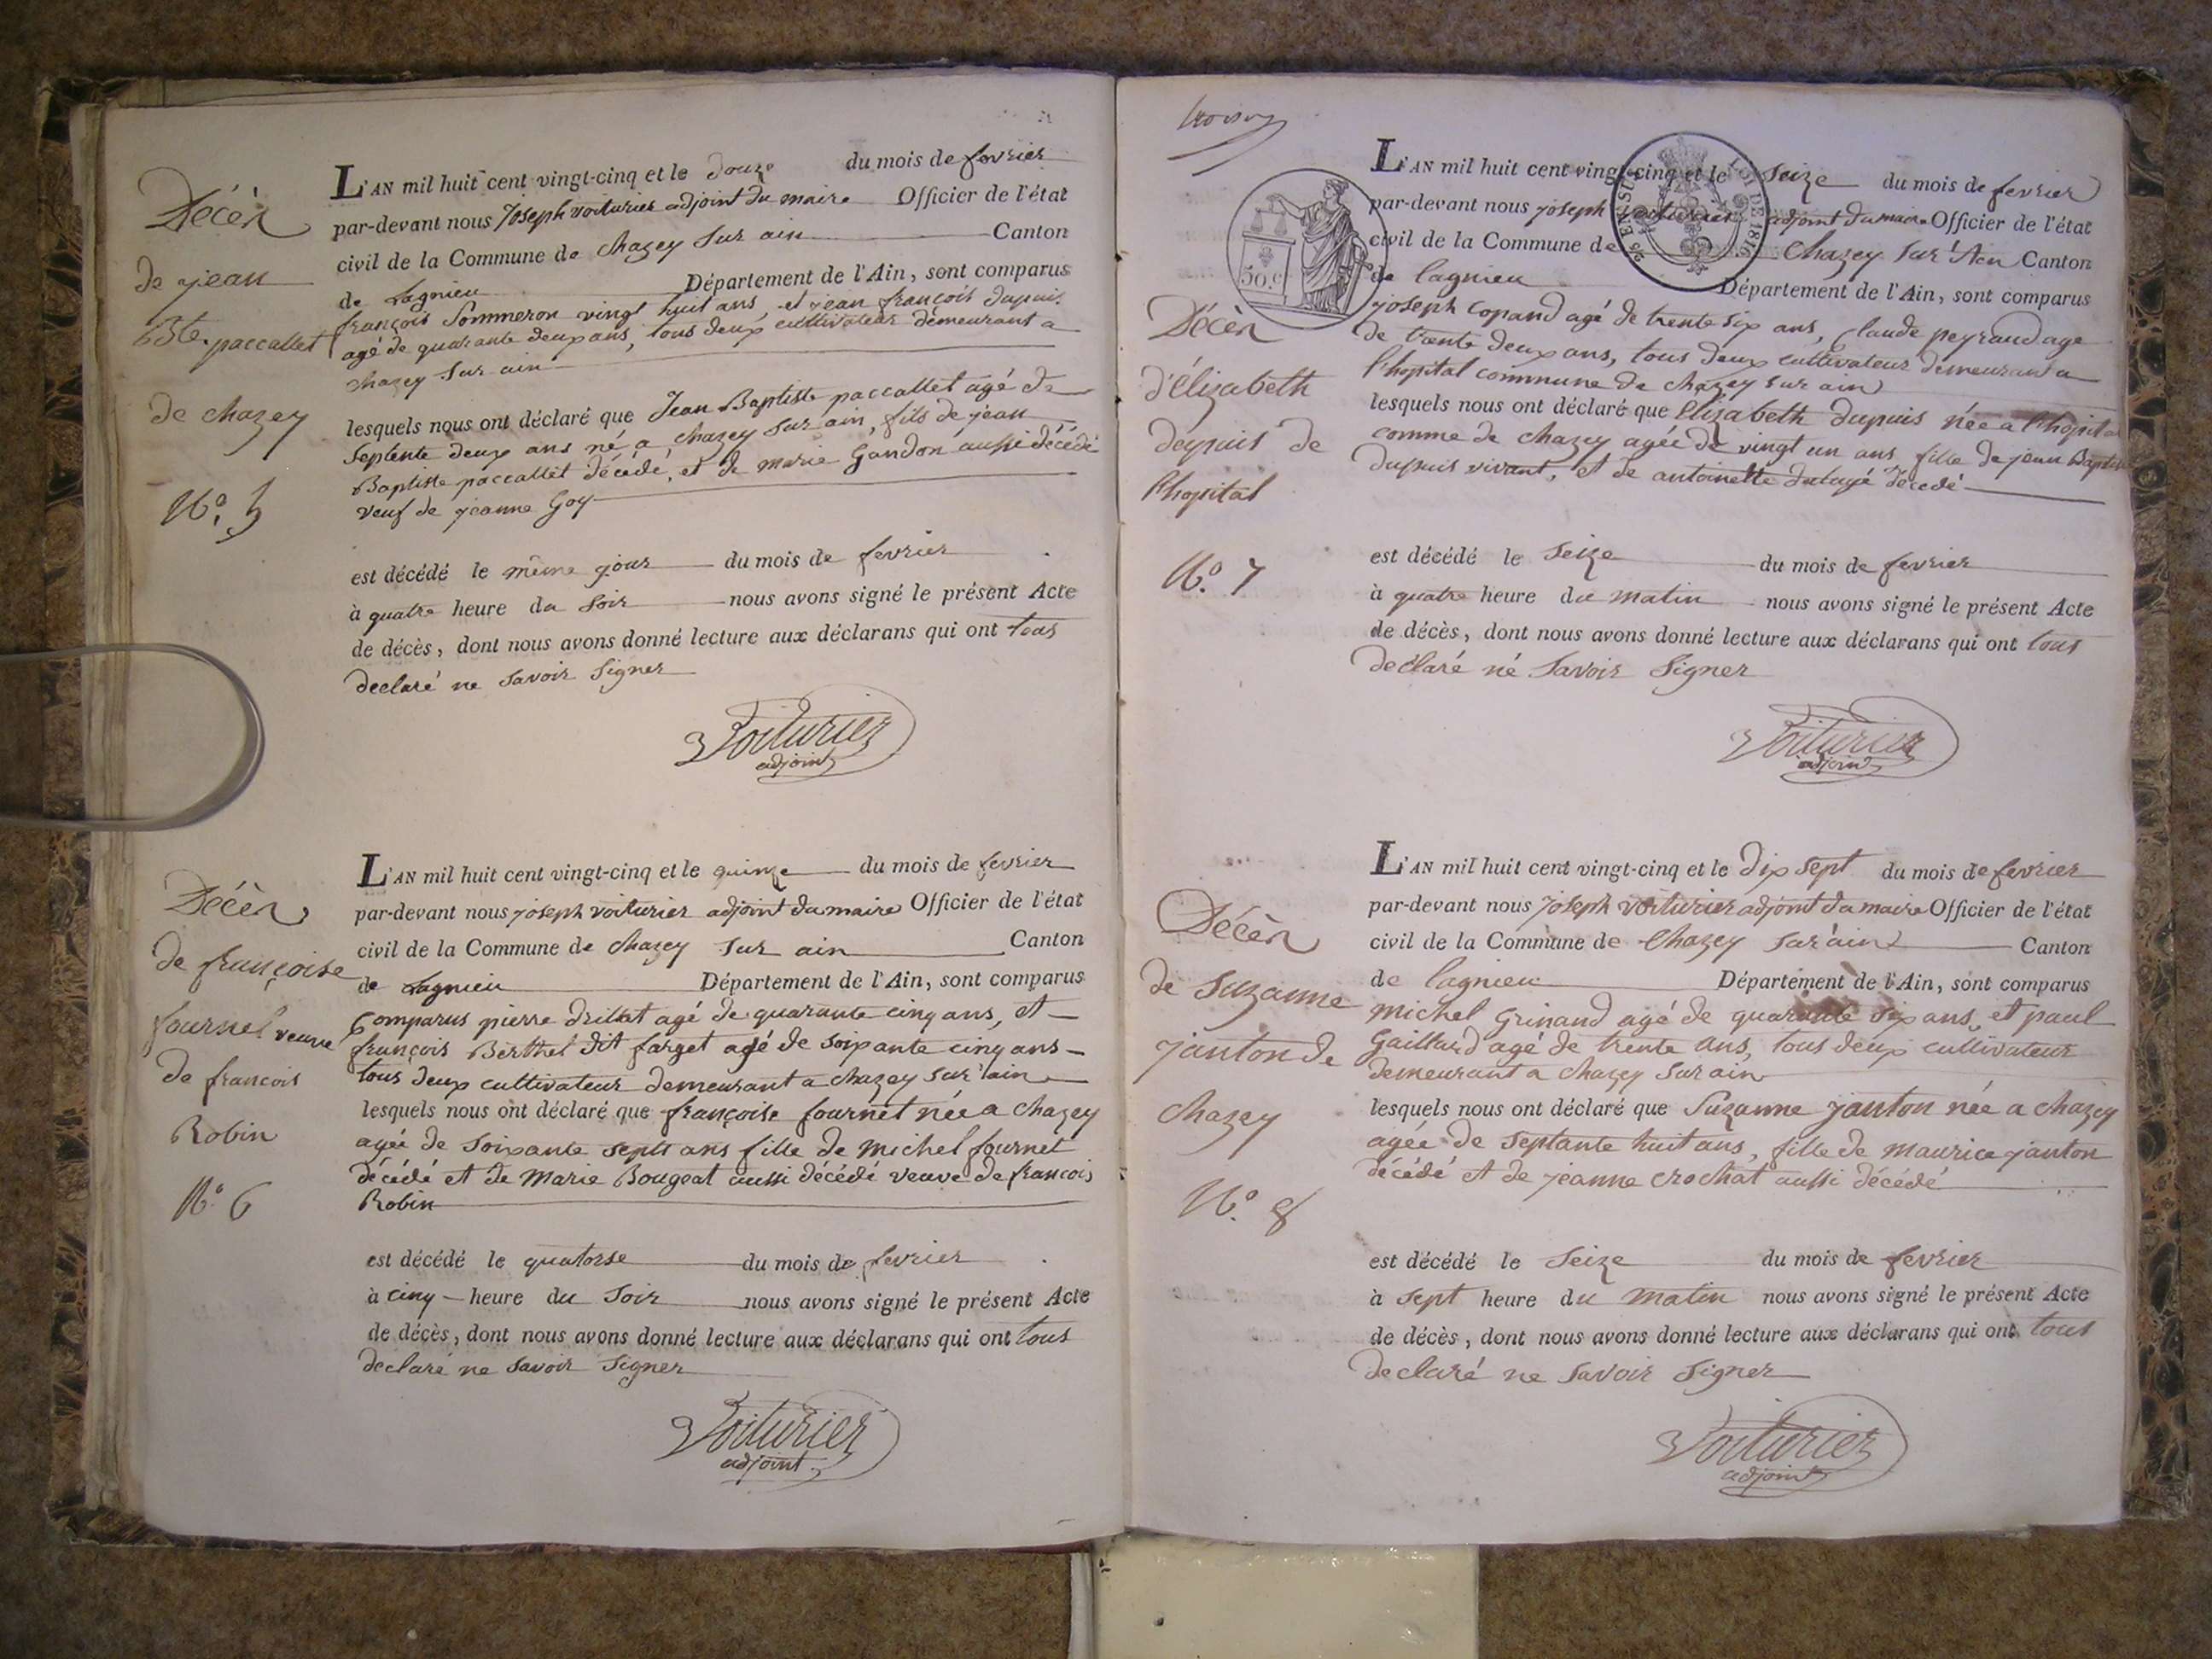 Décès
de jean
Bte. paccallet
de chazey
No. 5
L'AN mil huit cent vingt-cinq et le douze du mois de fevrier
par-devant nous Joseph voiturier adjoint du maire Officier de l'état
civil de la Commune de chazey sur ain Canton
de Lagnieu Département de l'Ain, sont comparus
françois Sommeron vingt huit ans et jean françois dupuis
agé de quarante deux ans, tous deux cultivateur demeurant a
chazey sur ain
lesquels nous ont déclaré que Jean Baptiste paccallet agé de
septente deux ans né a chazey sur ain, fils de jean
Baptiste paccallet décédé, et de marie Gandon aussi décédé
veuf de jeanne Goy
est décédé le même jour du mois de fevrier
à quatre heure du soir nous avons signé le présent Acte
de décès, dont nous avons donné lecture aux déclarans qui ont tous
declaré ne savoir signer
Voiturier
adjoint
Décès
de françoise
fournet veuve
de francois
Robin
No. 6
L'AN mil huit cent vingt-cinq et le quinze du mois de fevrier
par-devant nous joseph voiturier adjoint du maire Officier de l'état
civil de la Commune de chazey sur ain Canton
de Lagnieu Département de l'Ain, sont comparus
Comparus pierre drillat agé de quarante cinq ans, et
françois Berthet dit farget agé de soixante cinq ans
tous deux cultivateur demeurant a chazey sur lain
lesquels nous ont déclaré que françoise fournet née a chazey
agée de soixante septs ans fille de michel fournet
décédé et de Marie Bougeat aussi décédé veuve de francois
Robin
est décédé le quatorse du mois de fevrier
à cinq heure du soir nous avons signé le présent Acte
de décès, dont nous avons donné lecture aux déclarans qui ont tous
declaré ne savoir signer
Voiturier
adjoint
50.c.
LOI DE 1816
Décès
d'élizabeth
dupuis de
l'hopital
No. 7
L'AN mil huit cent vingt-cinq et le seize du mois de fevrier
par-devant nous joseph voiturier adjoint du maire Officier de l'état
civil de la Commune de Chazey sur Ain Canton
de lagnieu Département de l'Ain, sont comparus
joseph copand agé de trente six ans, Claude peyraud age
de trente deux ans, tous deux cultivateur demeurant a
l'hopital commune de chazey sur ain
lesquels nous ont déclaré que Elizabeth dupuis née a l'hopital
comme de chazey agée de vingt un ans fille de jean Baptiste
dupuis vivant, et de antoinette décedé
est décédé le seize du mois de fevrier
à quatre heure du matin nous avons signé le présent Acte
de décès, dont nous avons donné lecture aux déclarans qui ont tous
declaré né savoir signer
Voiturier
adjoint
Décès
de suzanne
janton de
chazey
No. 8
L'AN mil huit cent vingt-cinq et le dix sept du mois de fevrier
par-devant nous joseph voiturier adjoint du maire Officier de l'état
civil de la Commune de Chazey sur ain Canton
de lagnieu Département de l'Ain, sont comparus
michel Grinand agé de quarante six ans, et paul
Gaillard agé de trente ans, tous deux cultivateur
demeurant a chazey sur ain
lesquels nous ont déclaré que Suzanne janton née a chazey
agée de septante huit ans, fille de maurice janton
décédé et de jeanne crochat aussi décédé
est décédé le seize du mois de fevrier
à sept heure du matin nous avons signé le présent Acte
de décès, dont nous avons donné lecture aux déclarans qui ont tous
declaré ne savoir signer
Voiturier
adjoint